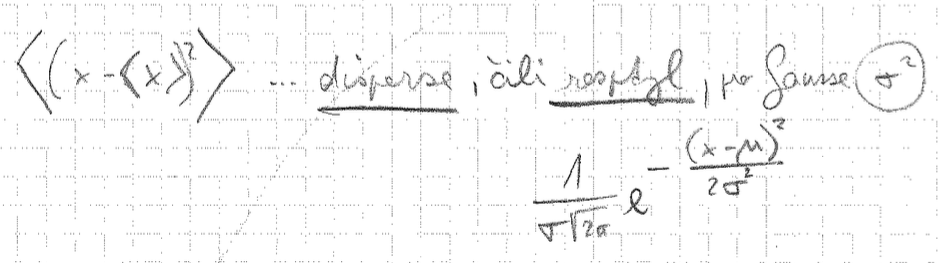 ⟨(x - ⟨x⟩)²⟩ ... disperse, čili rozptyl, pro Gausse σ²
1/(σ√2π) e^{-(x-μ)²/2σ²}